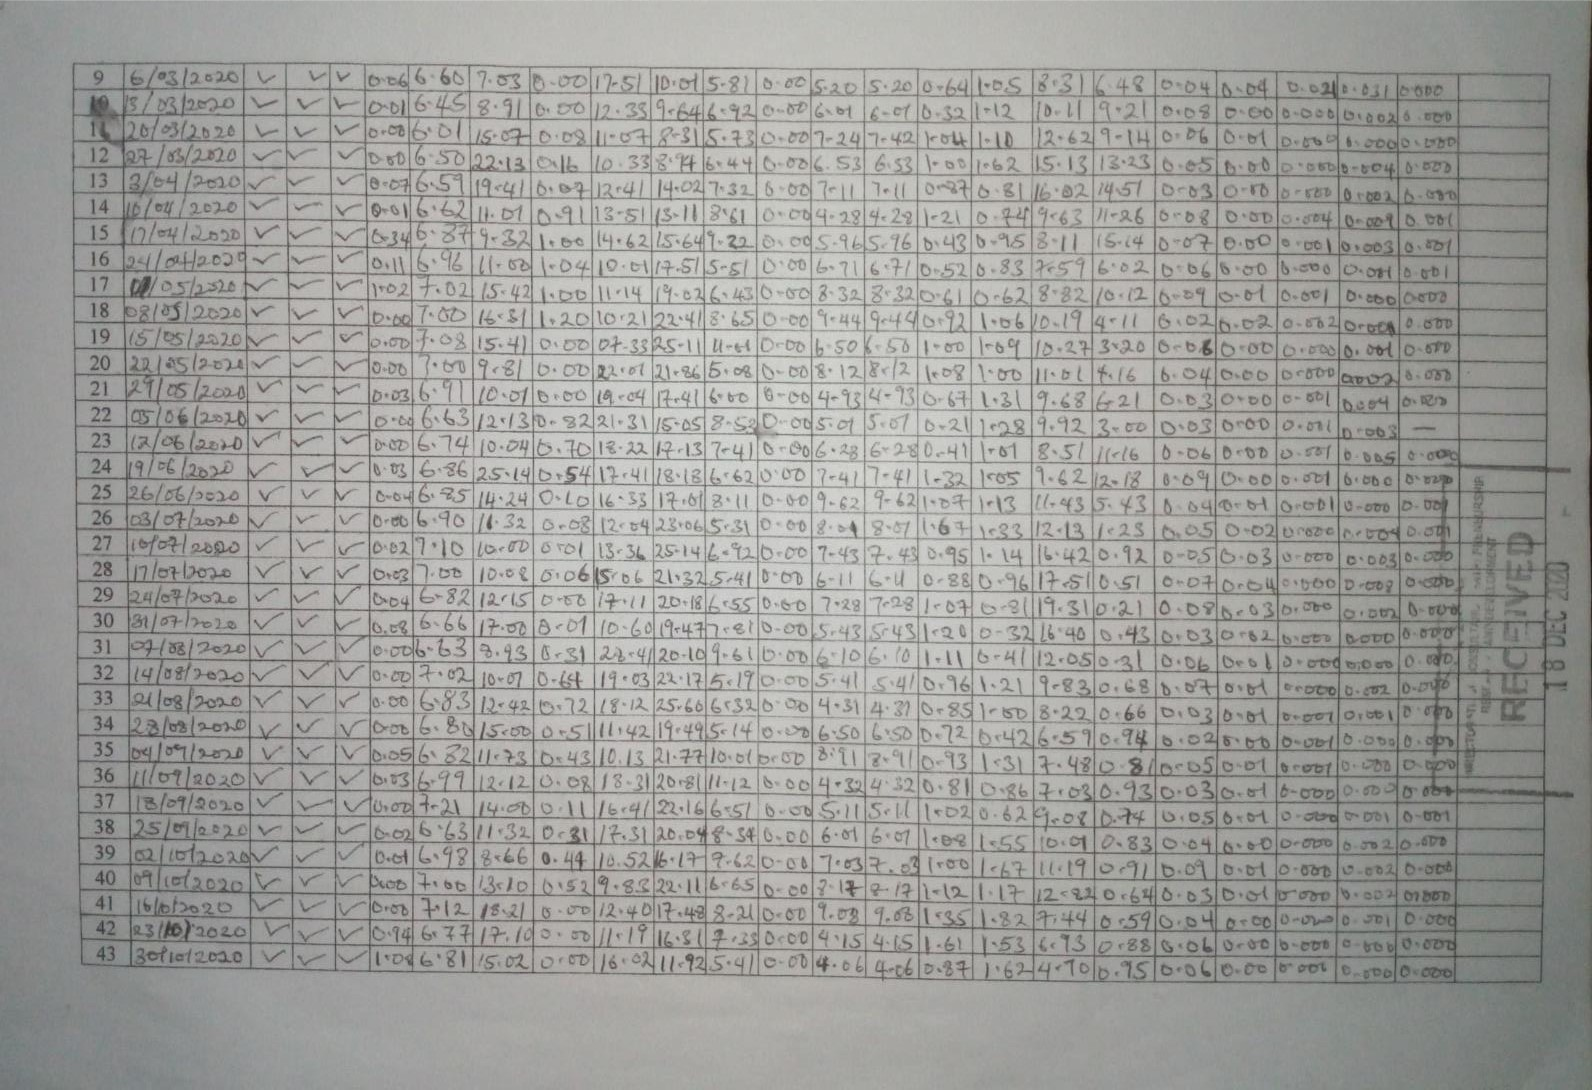 9 6/03/2020 ✓ ✓ ✓ 0.06 6.60 7.03 0.00 17.51 10.01 5.81 0.00 5.20 5.20 0.64 1.05 8.31 6.48 0.04 0.04 0.021 0.031 0.000
10 13/03/2020 ✓ ✓ ✓ 0.01 6.45 8.91 0.00 12.33 9.64 6.92 0.00 6.01 6.01 0.32 1.12 10.11 9.21 0.08 0.00 0.000 0.002 0.000
11 20/03/2020 ✓ ✓ ✓ 0.00 6.01 15.07 0.08 11.07 8.31 5.73 0.00 7.24 7.42 1.04 1.10 12.62 9.14 0.06 0.01 0.000 0.000 0.000
12 27/03/2020 ✓ ✓ ✓ 0.00 6.50 22.13 0.16 10.33 8.94 6.44 0.00 6.53 6.53 1.00 1.62 15.13 13.23 0.05 0.00 0.000 0.004 0.000
13 3/04/2020 ✓ ✓ ✓ 0.07 6.59 19.41 0.07 12.41 14.02 7.32 0.00 7.11 7.11 0.87 0.81 16.02 14.51 0.03 0.00 0.000 0.002 0.000
14 10/04/2020 ✓ ✓ ✓ 0.01 6.62 11.01 0.91 13.51 13.11 8.61 0.00 4.28 4.28 1.21 0.74 9.63 11.26 0.08 0.00 0.004 0.009 0.001
15 17/04/2020 ✓ ✓ ✓ 0.34 6.87 9.32 1.00 14.62 15.64 9.22 0.00 5.96 5.96 0.43 0.95 8.11 15.14 0.07 0.00 0.001 0.003 0.001
16 24/04/2020 ✓ ✓ ✓ 0.11 6.96 11.00 1.04 10.01 17.51 5.51 0.00 6.71 6.71 0.52 0.83 7.59 6.02 0.06 0.00 0.000 0.001 0.001
17 01/05/2020 ✓ ✓ ✓ 1.02 7.02 15.42 1.00 11.14 19.02 6.43 0.00 8.32 8.32 0.61 0.62 8.82 10.12 0.09 0.01 0.001 0.000 0.000
18 08/05/2020 ✓ ✓ ✓ 0.00 7.00 16.31 1.20 10.21 22.41 8.65 0.00 9.44 9.44 0.92 1.06 10.19 4.11 0.02 0.02 0.002 0.000
19 15/05/2020 ✓ ✓ ✓ 0.00 7.08 15.41 0.00 07.33 25.11 0.00 6.50 6.50 1.00 1.09 10.27 3.20 0.08 0.00 0.000 0.001 0.000
20 22/05/2020 ✓ ✓ ✓ 0.00 7.00 9.81 0.00 22.01 21.86 5.08 0.00 8.12 8.12 1.08 1.00 11.01 4.16 0.04 0.00 0.000 0.002 0.000
21 29/05/2020 ✓ ✓ ✓ 0.03 6.91 10.01 0.00 19.04 17.41 6.00 0.00 4.93 4.93 0.67 1.31 9.68 6.21 0.03 0.00 0.001 0.004 0.000
22 05/06/2020 ✓ ✓ ✓ 0.00 6.63 12.13 0.82 21.31 15.05 8.52 0.00 5.01 5.01 0.21 1.28 9.92 3.00 0.03 0.00 0.001 0.003 —
23 12/06/2020 ✓ ✓ ✓ 0.00 6.74 10.04 0.70 18.22 17.13 7.41 0.00 6.28 6.28 0.41 1.01 8.51 11.16 0.06 0.00 0.001 0.005 0.000
24 19/06/2020 ✓ ✓ ✓ 0.03 6.86 25.14 0.54 17.41 18.18 6.62 0.00 7.41 7.41 1.32 1.05 9.62 12.18 0.09 0.00 0.001 0.000 0.020
25 26/06/2020 ✓ ✓ ✓ 0.04 6.85 14.24 0.10 16.33 17.01 8.11 0.00 9.62 9.62 1.07 1.13 11.43 5.43 0.04 0.01 0.001 0.000 0.001
26 03/07/2020 ✓ ✓ ✓ 0.00 6.90 11.32 0.08 12.04 23.06 5.31 0.00 8.01 8.01 1.67 1.33 12.13 1.23 0.05 0.02 0.000 0.004 0.001
27 10/07/2020 ✓ ✓ ✓ 0.02 7.10 10.00 0.01 13.36 25.14 6.92 0.00 7.43 7.43 0.95 1.14 16.42 0.92 0.05 0.03 0.000 0.003 0.000
28 17/07/2020 ✓ ✓ ✓ 0.03 7.00 10.08 0.06 15.06 21.32 5.41 0.00 6.11 6.11 0.88 0.96 17.51 0.51 0.07 0.04 0.000 0.008 0.000
29 24/07/2020 ✓ ✓ ✓ 0.04 6.82 12.15 0.00 17.11 20.18 6.55 0.00 7.28 7.28 1.07 0.81 19.31 0.21 0.08 0.03 0.000 0.002 0.000
30 31/07/2020 ✓ ✓ ✓ 0.08 6.66 17.00 0.01 10.60 19.47 7.81 0.00 5.43 5.43 1.20 0.32 16.40 0.43 0.03 0.02 0.000 0.000 0.000
31 07/08/2020 ✓ ✓ ✓ 0.00 6.63 8.93 0.31 22.41 20.10 9.61 0.00 6.10 6.10 1.11 0.41 12.05 0.31 0.06 0.01 0.000 0.000 0.000
32 14/08/2020 ✓ ✓ ✓ 0.00 7.02 10.07 0.64 19.03 22.17 5.19 0.00 5.41 5.41 0.96 1.21 9.83 0.68 0.07 0.01 0.000 0.002 0.000
33 21/08/2020 ✓ ✓ ✓ 0.00 6.83 12.42 0.72 18.12 25.66 6.32 0.00 4.31 4.31 0.85 1.00 8.22 0.66 0.03 0.01 0.001 0.001 0.000
34 28/08/2020 ✓ ✓ ✓ 0.00 6.80 15.00 0.51 11.42 19.49 5.14 0.00 6.50 6.50 0.72 0.42 6.59 0.94 0.02 0.00 0.001 0.000 0.000
35 04/09/2020 ✓ ✓ ✓ 0.05 6.82 11.73 0.43 10.13 21.77 10.01 0.00 8.91 8.91 0.93 1.31 7.48 0.81 0.05 0.01 0.001 0.000 0.000
36 11/09/2020 ✓ ✓ ✓ 0.03 6.99 12.12 0.08 18.31 20.81 11.12 0.00 4.32 4.32 0.81 0.86 7.03 0.93 0.03 0.01 0.000 0.000 0.000
37 18/09/2020 ✓ ✓ ✓ 0.00 7.21 14.00 0.11 16.41 22.16 6.51 0.00 5.11 5.11 1.02 0.62 9.08 0.74 0.05 0.01 0.000 0.001 0.001
38 25/09/2020 ✓ ✓ ✓ 0.02 6.63 11.32 0.31 17.31 20.04 8.34 0.00 6.01 6.01 1.08 1.55 10.01 0.83 0.04 0.00 0.000 0.002 0.000
39 02/10/2020 ✓ ✓ ✓ 0.01 6.98 8.66 0.44 10.52 16.17 9.62 0.00 7.03 7.03 1.00 1.67 11.19 0.91 0.09 0.01 0.000 0.002 0.000
40 09/10/2020 ✓ ✓ ✓ 0.00 7.00 13.10 0.52 9.83 22.11 6.65 0.00 8.17 8.17 1.12 1.17 12.82 0.64 0.03 0.01 0.000 0.002 0.000
41 16/10/2020 ✓ ✓ ✓ 0.00 7.12 18.21 0.00 12.40 17.48 8.21 0.00 9.08 9.08 1.35 1.82 7.44 0.59 0.04 0.00 0.000 0.001 0.000
42 23/10/2020 ✓ ✓ ✓ 0.94 6.77 17.10 0.00 11.19 16.31 7.33 0.00 4.15 4.15 1.61 1.53 6.93 0.88 0.06 0.00 0.000 0.000 0.000
43 30/10/2020 ✓ ✓ ✓ 1.08 6.81 15.02 0.00 16.02 11.92 5.41 0.00 4.06 4.06 0.87 1.62 4.70 0.95 0.06 0.00 0.001 0.000 0.000
RECEIVED
18 DEC 2020